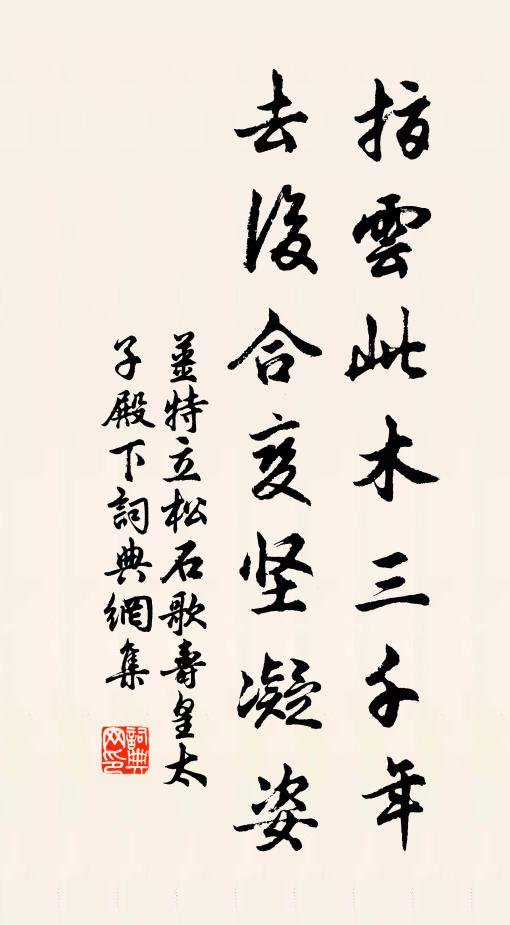 指雲此木三千年
去後合变坚凝姿
薑特立松石歌壽皇太
子殿下詞典網集
詞典网印